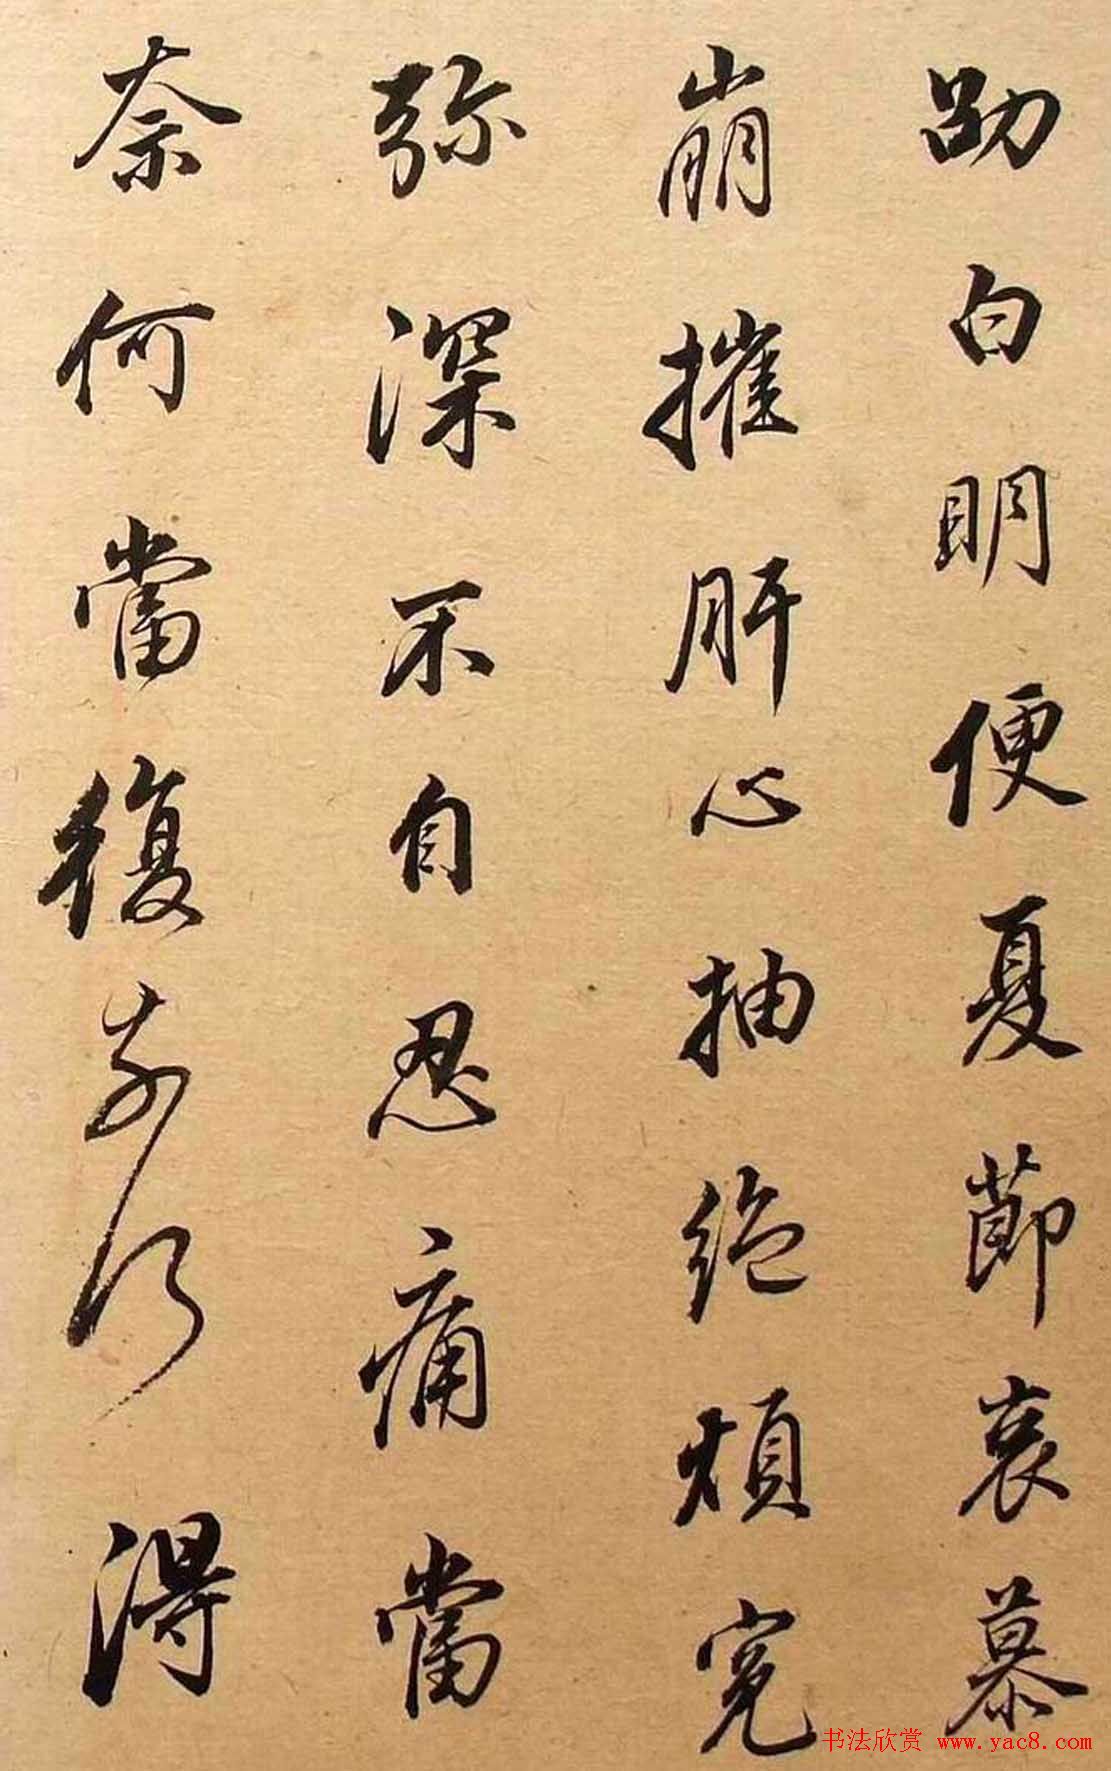 劭白明便夏節哀慕
崩摧肝心抽絶煩冤
弥深不自忍痛當
奈何當復奈何得
书法欣赏 www.yac8.com